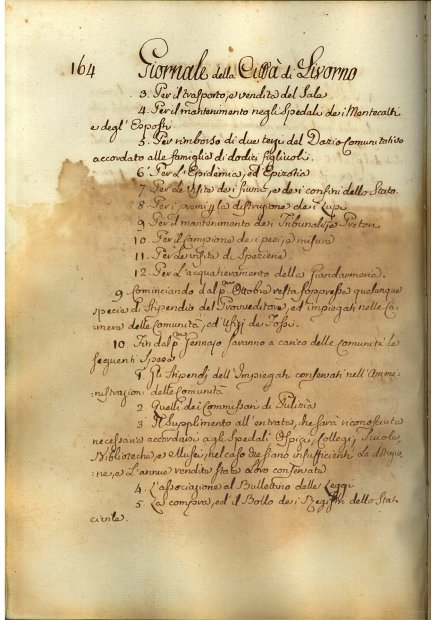 164 Giornale della Città di Livorno
3. Per il trasporto, e vendita del Sale
4. Per il mantenimento negli Spedali dei Mentecatti
e degl' Esposti
5. Per rimborso di due terzi del Dazio Comunitativo
accordato alle famiglie di dodici figliuoli.
6. Per L'Epidemia, ed Epizotia
7. Per Le Visite dei fiumi, e dei confini dello Stato.
8. Per i premi p la distruzione dei Lupi
9. Per il mantenimento dei Tribunali, e Pretori
10. Per il Campione dei pesi, e misure
11. Per Le visite di Spezierie
12. Per L'acquartieramento della Giandarmeria.
9. Cominciando dal pmo Ottobre resta soppressa qualunque
specie di Stipendio del Provveditore, ed impiegati nelle Ca-
mera delle Comunità, ed Ufizj dei Fossi.
10. Fin dal pmo Gennajo saranno a carico delle Comunità le
seguenti Spese
1. Gli Stipendj dell'Impiegati conservati nell'Ammi-
nistrazioni delle Comunità
2. Quelli dei Commissari di Pulizia
3. Il Supplimento all'entrate, che sarà riconosciuto
necessario accordarsi agli Spedali Ospizj, Collegj, Scuole,
Biblioteche, e Musei, nel caso che siano insufficienti Le
ne, e L'annue rendite state Loro conservate
4. L'associazione al Bullettino delle Leggi
5. La compra, ed il Bollo dei Registri dello Stato
civile.